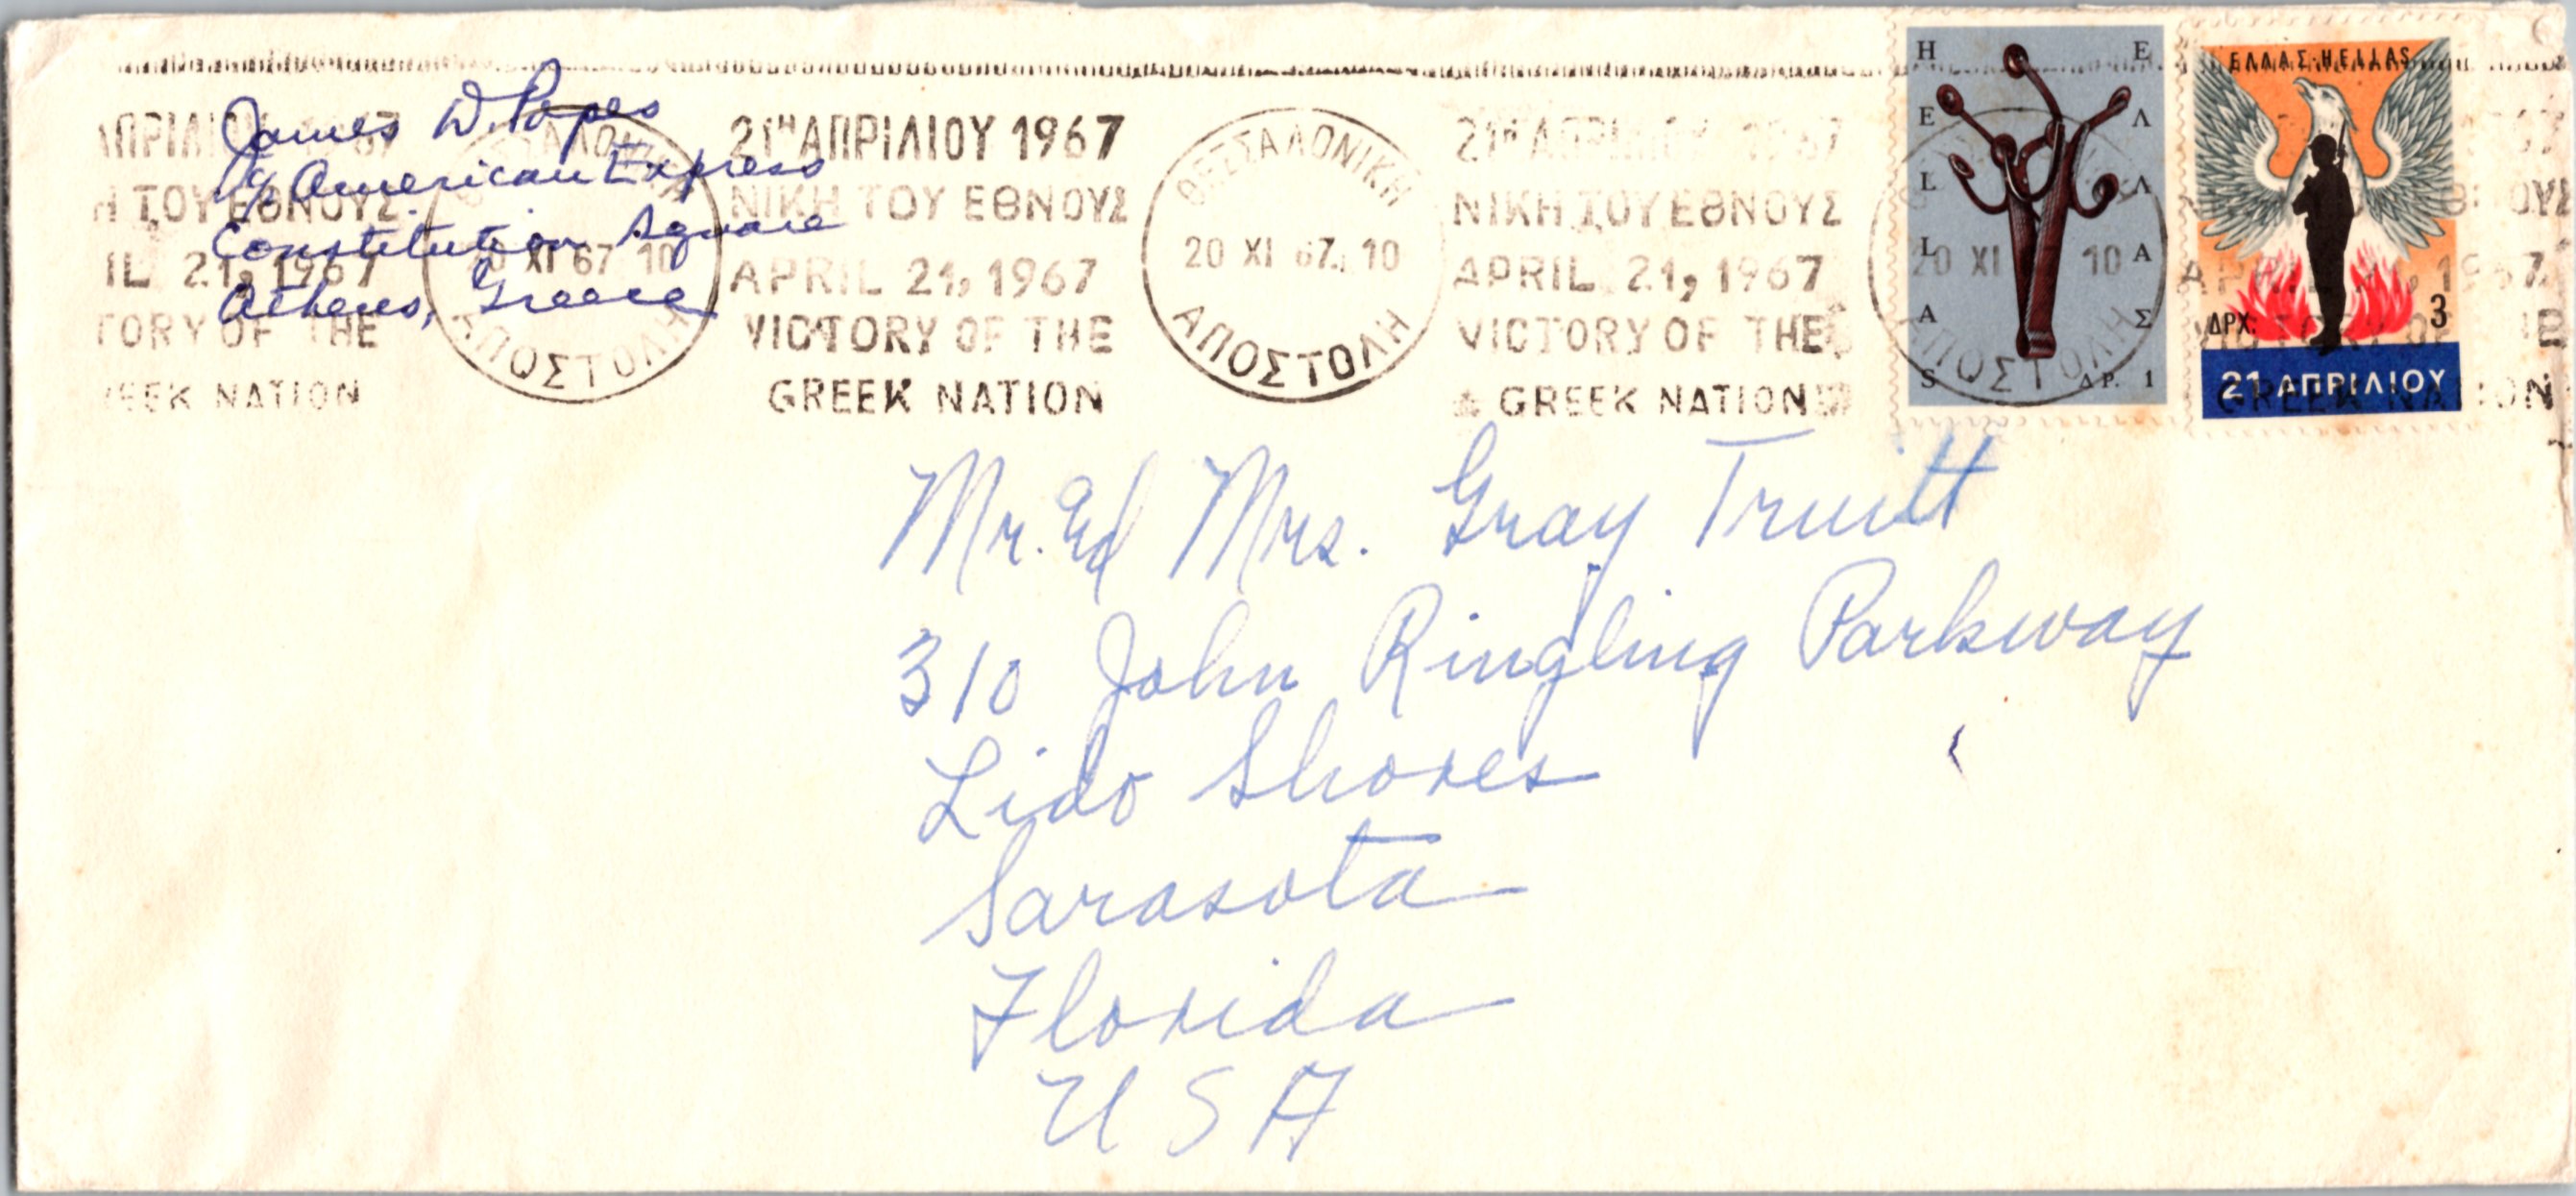 James W. Papes
c/o American Express
Constitution Square
Athens, Greece
ΑΠΡΙΛΙΟΥ 1967
Η ΤΟΥ ΕΘΝΟΥΣ
IL 21, 1967
TORY OF THE
EEK NATION
ΘΕΣΣΑΛΟΝΙΚΗ
20 XI 67 10
ΑΠΟΣΤΟΛΗ
21Η ΑΠΡΙΛΙΟΥ 1967
ΝΙΚΗ ΤΟΥ ΕΘΝΟΥΣ
APRIL 21, 1967
VICTORY OF THE
GREEK NATION
ΘΕΣΣΑΛΟΝΙΚΗ
20 XI 67. 10
ΑΠΟΣΤΟΛΗ
21Η ΑΠΡΙΛΙΟΥ 1967
ΝΙΚΗ ΤΟΥ ΕΘΝΟΥΣ
APRIL 21, 1967
VICTORY OF THE
GREEK NATION
HELLAS
ΕΛΛΑΣ
ΔΡ. 1
20 XI 10
ΑΠΟΣΤΟΛΗ
ΕΛΛΑΣ-HELLAS
ΔΡΧ. 3
21 ΑΠΡΙΛΙΟΥ
GREEK NATION
Mr. Ed Mrs. Gray Truitt
310 John Ringling Parkway
Lido Shores
Sarasota
Florida
USA